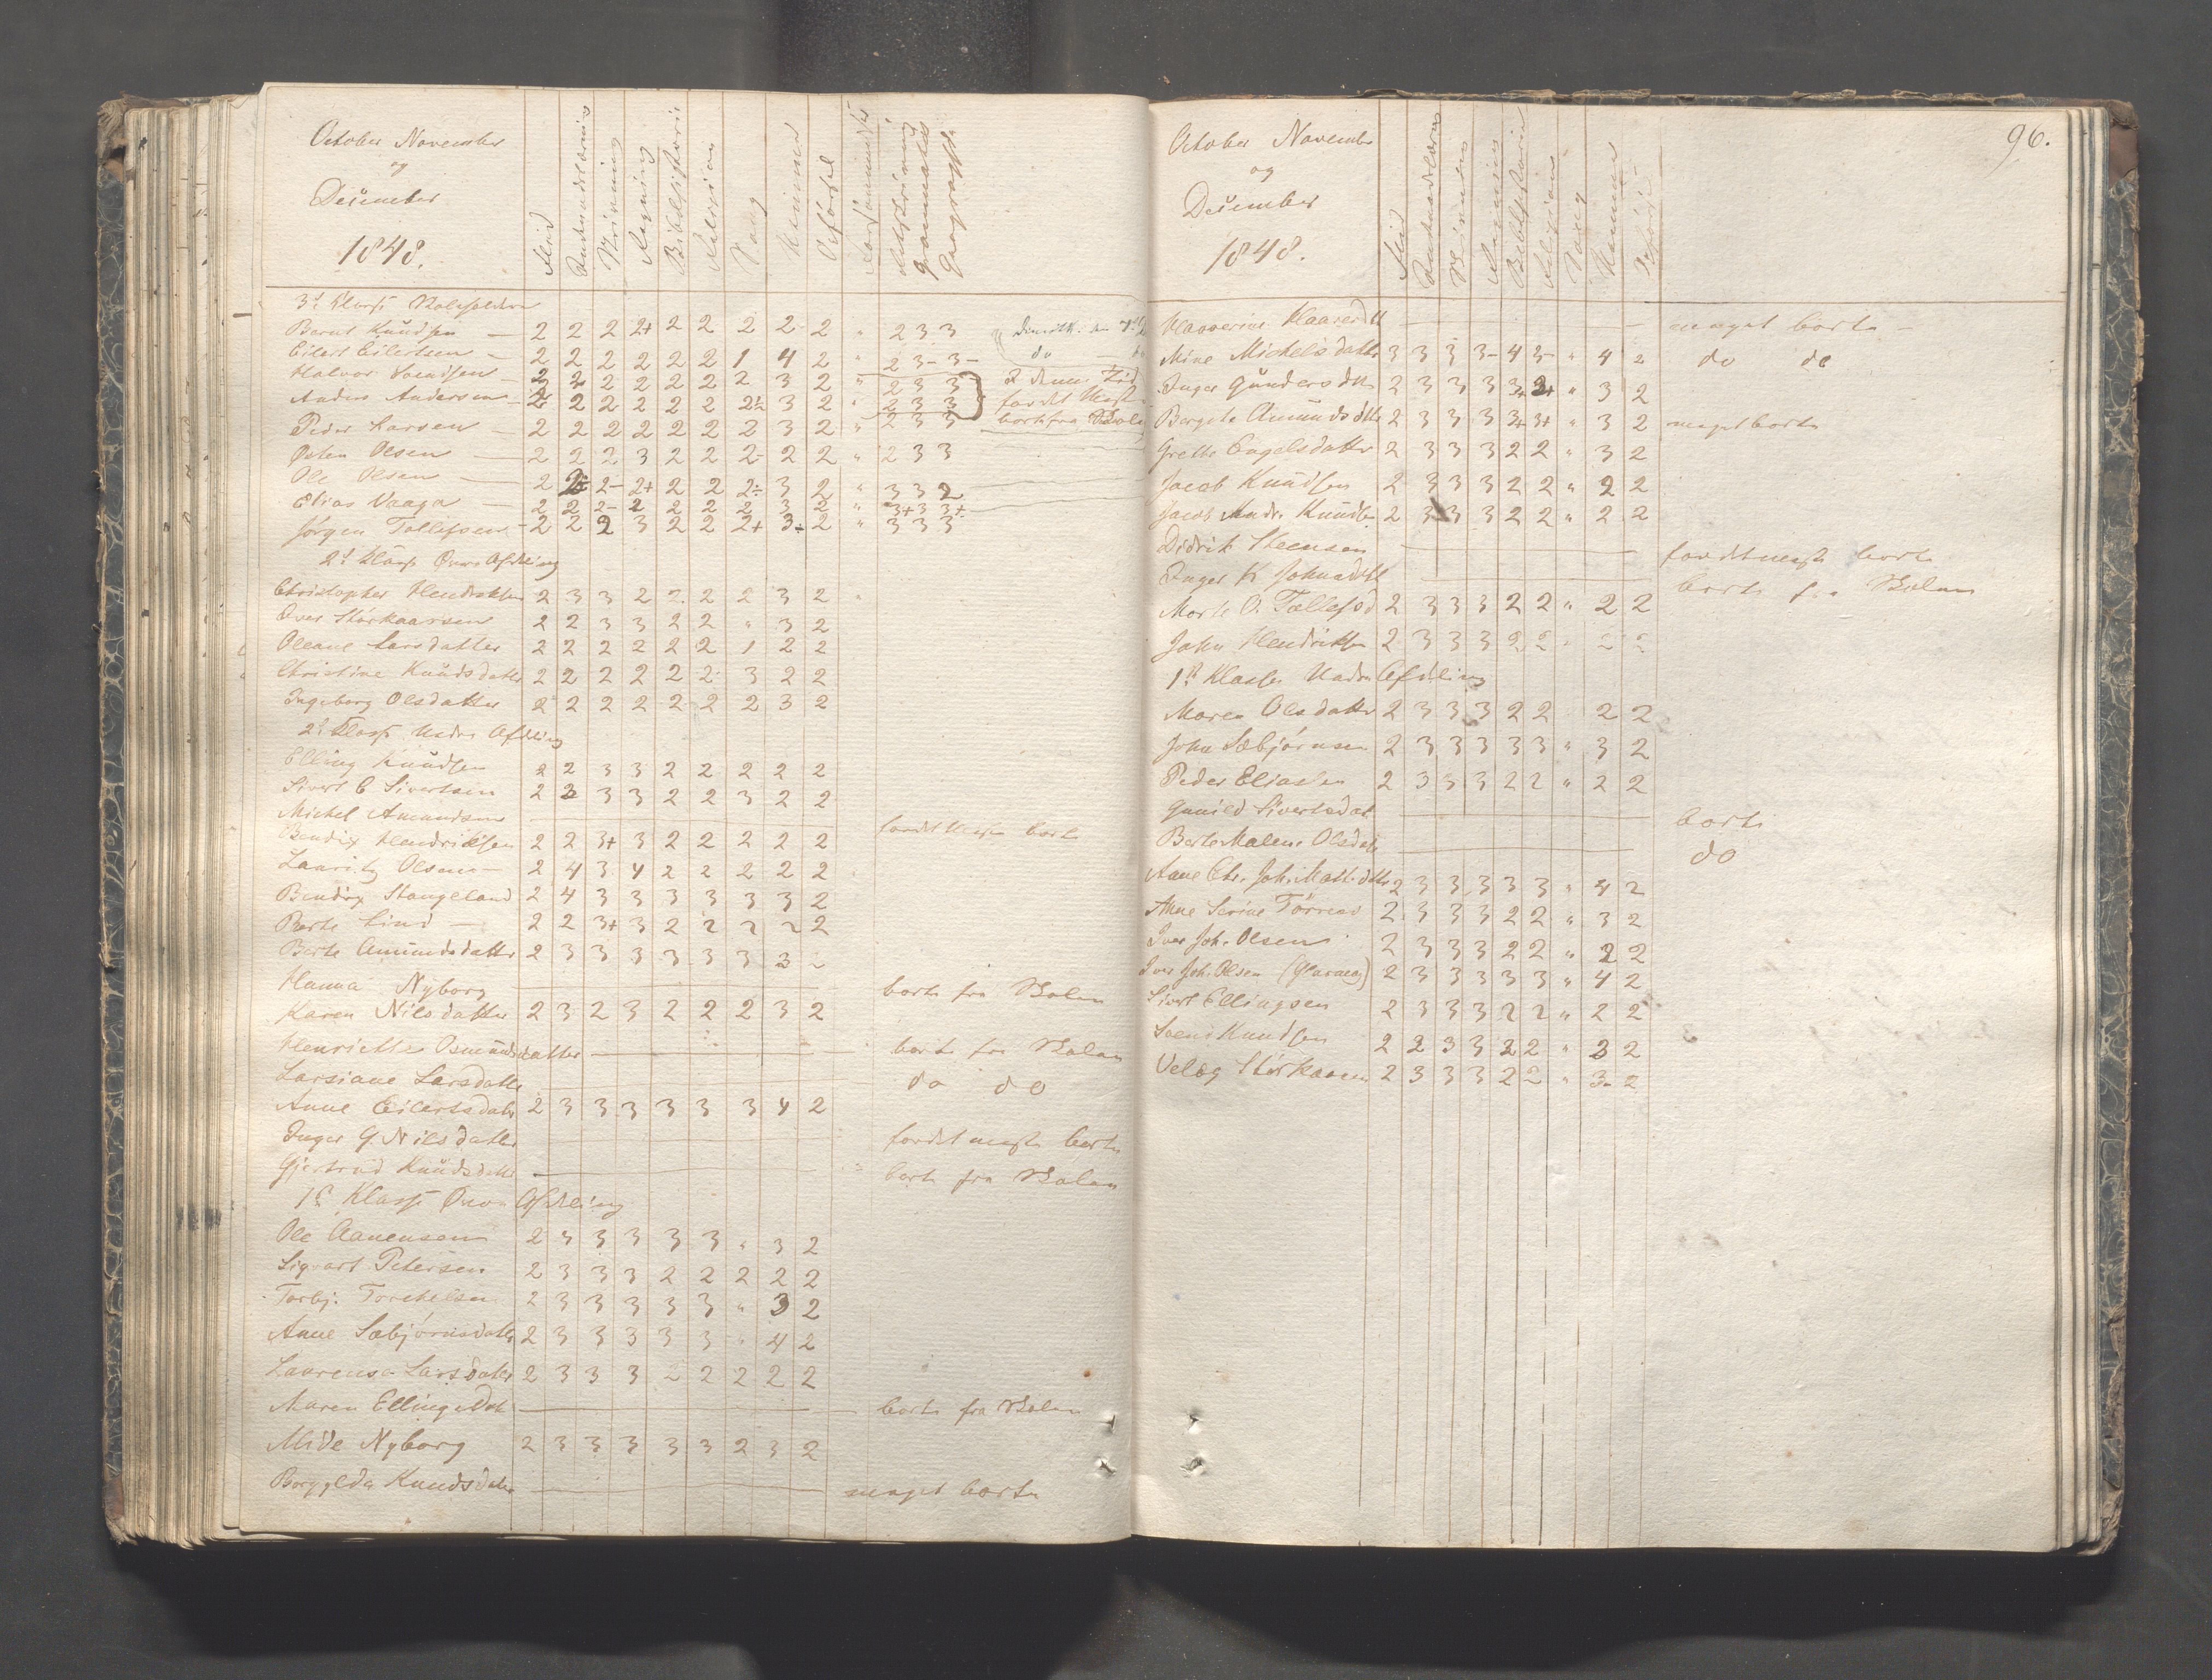 October November
og
December
1848.
Flid
Indenadlæsning
Skrivning
Regning
Bibelhistorie
Religion
Sang
Hukommelse
Opførsel
Retskrivning
Grammatik
Geografi
3d Klasse
Bernt Knudsen — 2 2 2 2+ 2 2 2 2 2 " 2 3 3
Eilert Eilertsen — 2 2 2 2 2 2 1 4 2 " 2 3- 3- do
Halvor Svendsen — 2 2 2 2 2 2 2 3 2 " 2 3 3
Anders Andersen — 2 2 2 2 2 2 2÷ 3 2 " 2 3 3 fordet meste
Peder Larsen — 2 2 2 2 2 2 2 3 2 " 2 3 3 borte fra Skolen
Østen Olsen — 2 2 2 3 2 2 2- 2 2 " 2 3 3
Ole Olsen — 2 2÷ 2- 2+ 2 2 2÷ 3 2 " 3 3 2
Elias Vaaga — 2 2 2- 2 2 2 2 3 2 " 3+ 3 3+
Jørgen Tollefsen — 2 2 2 3 2 2 2+ 3÷ 2 " 3 3 3
2d Klasse Øvre Afdeling
Christopher Hendriksen 2 3 3 2 2 2 2 3 2 "
Over Størkaarsen 2 2 3 3 2 2 " 3 2
Oleane Larsdatter 2 2 2 2 2 2 1 2 2
Christine Knudsdatter 2 2 2 2 2 2 3 2 2
Ingeborg Olsdatter 2 2 2 2 2 2 2 3 2
2d Klasse Nedre Afdeling
Elling Knudsen 2 2 3 3 2 2 2 2 2
Sivert C Sivertsen 2 2 3 3 2 2 3 2 2
Michel Amundsen — fordet meste borte
Bendix Hendriksen 2 2 3+ 3 2 2 2 2 2
Lauritz Olsen — 2 4 3 4 2 2 2 2 2
Bendix Stangeland 2 4 3 3 3 3 3 3 2
Berte Lind — 2 2 3+ 3 2 2 2 2 2
Berte Amundsdatter 2 3 3 3 3 3 3 3 2
Hanna Nyborg — borte fra Skolen
Karen Nilsdatter 2 3 2 3 2 2 2 3 2
Henriette Osmundsdatter — borte fra Skolen
Larsiane Larsdatter — do do
Anne Eilertsdatr 2 3 3 3 3 3 3 4 2
Inger G Nilsdatter — fordet meste borte
Gjertrud Knudsdatter — borte fra Skolen
1ste Klasse Øvre Afdeling
Ole Aanensen 2 4 3 3 3 3 " 3 2
Sigvart Petersen 2 3 3 3 2 2 2 2 2
Torbj. Torchelsen 2 3 3 3 3 3 " 3 2
Anne Sæbjørnsdatter 2 3 3 3 3 3 " 4 2
Laurensa Larsdatter 2 3 3 3 2 2 2 2 2
Maren Ellingsdat — borte fra Skolen
Mide Nyborg 2 3 3 3 3 3 2 3 2
Borgylda Knudsdater — meget borte
96.
October November
og
December
1848.
Flid
Indenadlæsn
Skrivning
Regning
Bibelhistorie
Religion
Sang
Hukommelse
Opførsel
— meget borte —
Mine Michelsdatter 3 3 3 3- 4 3- " 4 2 do do
Inger Gundersdtr 2 3 3 3 3+ 2+ " 3 2
Bergite Amundsdtr 2 3 3 3 3+ 3+ " 3 2 meget borte
Grethe Engelsdatter 2 3 3 3 2 2 " 3 2
Jacob Knudsen 2 3 3 3 2 2 " 2 2
Jacob Andr. Knuds. 2 3 3 3 2 2 " 2 2
Didrik Steensen — fordetmeste borte
Inger K Johnsdtr — borte fra Skolen
Morte O. Tollefsd 2 3 3 3 2 2 " 2 2
John Hendriksen 2 3 3 3 2 2 " 2 2
1ste Klasse Nedre Afdeling
Maren Olsdatter 2 3 3 3 2 2 2 2
John Sæbjørnsen 2 3 3 3 3 3 " 3 2
Peder Eliassen 2 3 3 3 2 2 " 2 2
Gunild Sivertsdat — borte
Berte Malene Olsdatr — do
Anne Chr. Joh. Matt. dtr 2 3 3 3 3 3 " 4 2
Anne Serine Tørres 2 3 3 3 2 2 " 3 2
Iver Joh. Olsen 2 3 3 3 2 2 " 2 2
Iver Joh. Olsen 2 3 3 3 3 3 " 4 2
Sivert Ellingsen 2 3 3 3 2 2 " 2 2
Svend Knudsen 2 2 3 3 2 2 " 3 2
Velæg Størkarsen 2 3 3 3 2 2 " 3- 2